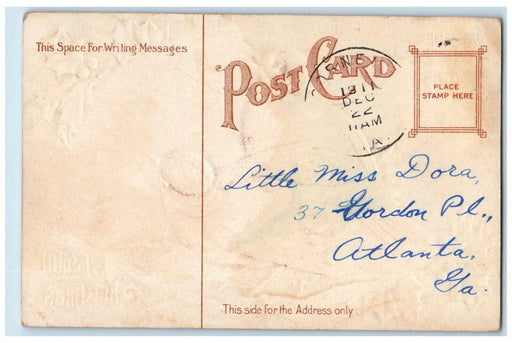 This Space For Writing Messages
POST CARD
1911
DEC
22
11AM
IA.
PLACE
STAMP HERE
Little Miss Dora,
37 Gordon Pl.,
Atlanta,
Ga.
This side for the Address only